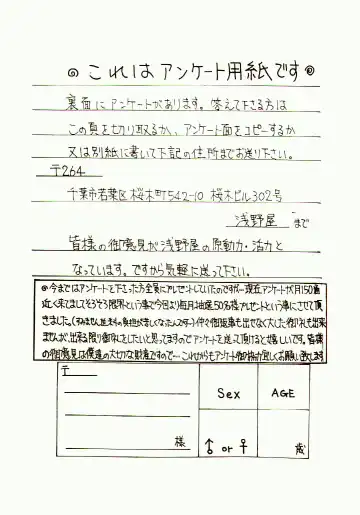 ◎これはアンケート用紙です◎
裏面にアンケートがあります。答えて下さる方は
この頁を切り取るか、アンケート面をコピーするか
又は別紙に書いて下記の住所までお送り下さい。
〒264
千葉市若葉区桜木町542-10 桜木ビル302号
浅野屋 まで
皆様の御意見が浅野屋の原動力・活力と
なっています。ですから気軽に送って下さい。
◎今まではアンケートを下さった方全員にプレゼントしていたのですが…現在アンケートが月150通
近く来てましてそろそろ限界という事で今回より毎月抽選50名様プレゼントという事にさせて頂
きました。(すみません
御返事も出せなく大した御礼も出来
ませんが、出来る限り御中をしたいと思ってますのでアンケートを送って頂けると嬉しいです。皆様
の御意見は僕達の大切な財産ですので…これからもアンケート御協力宜しくお願い致します
〒
様
Sex
AGE
♂ or ♀
歳